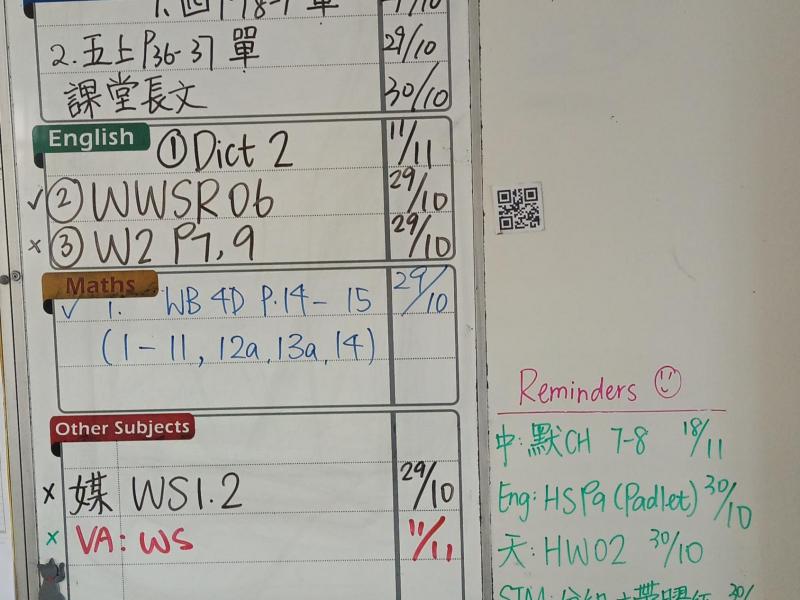 2. 五上P36-37 單 29/10
課堂長文 30/10
English
① Dict 2 11/11
✓ ② WWSR06 29/10
× ③ W2 P7, 9 29/10
Maths
✓ 1. WB 4D P.14-15 29/10
(1-11, 12a, 13a, 14)
Other Subjects
× 媒 WS1.2 29/10
× VA: WS 11/11
Reminders
中: 默CH 7-8 18/11
Eng: HSP9 (Padlet) 30/10
天: HW02 30/10